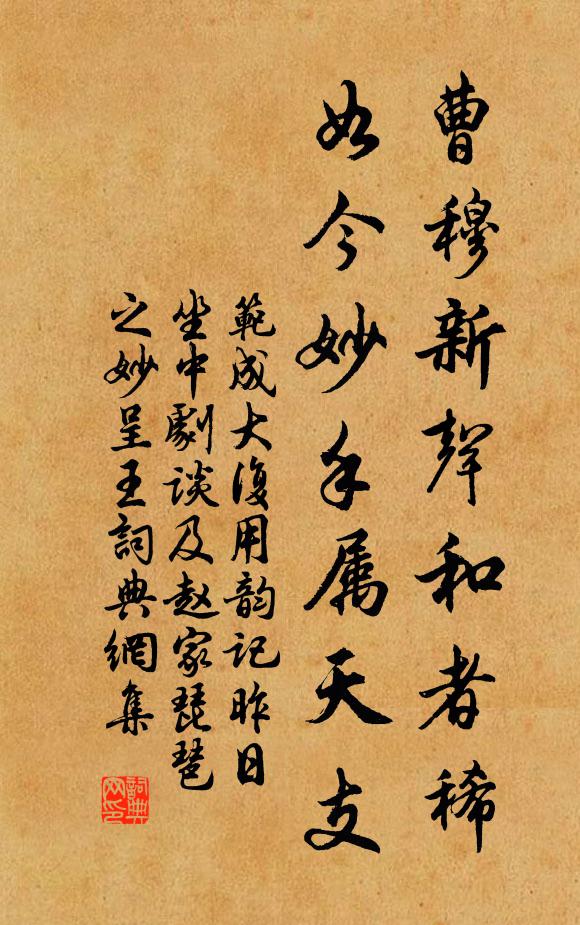 曹穆新聲和者稀
如今妙手属天支
範成大復用韵記昨日
坐中劇谈及赵家琵琶
之妙呈王詞典網集
詞典
网印